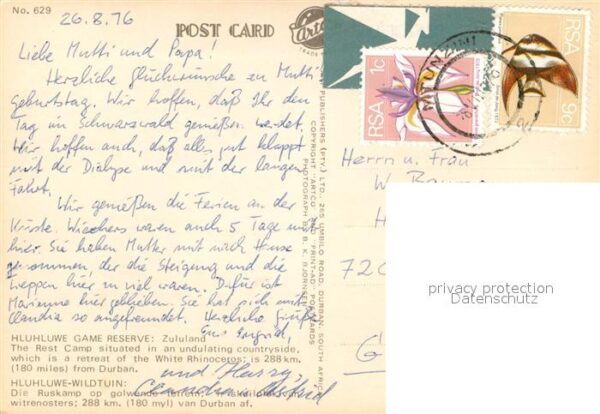 No. 629
26.8.76
POST CARD
Artco
RSA 1c
RSA 9c
MTUNZINI
Liebe Mutti und Papa!
Herzliche Glückwünsche zu Mutti's
Geburtstag. Wir hoffen, daß Ihr den
Tag im Schwarzwald genießen werdet.
Wir hoffen auch, daß alles gut klappt
mit der Dialyse und mit der langen
Fahrt.
Wir genießen die Ferien an der
Küste. Wiechers waren auch 5 Tage
hier. Sie haben Mutter mit nach Hause
genommen, der die Steigung und die
Treppen hier zu viel waren. Dafür ist
Marianne hier geblieben. Sie hat sich mit
Claudia so angefreundet. Herzliche Grüße
Eure Ingrid,
und Harry,
Claudia Astrid
Herrn u. Frau
W.
H
72
G
PUBLISHERS (PTY) LTD., 205 UMBILO ROAD, DURBAN, SOUTH AFRICA
COPYRIGHT "ARTCO" AND "PRINT-AD" POSTCARDS
PHOTOGRAPH BY B. K. BJORNSEN
privacy protection
Datenschutz
HLUHLUWE GAME RESERVE: Zululand
The Rest Camp situated in an undulating countryside,
which is a retreat of the White Rhinoceros; is 288 km.
(180 miles) from Durban.
HLUHLUWE-WILDTUIN:
Die Ruskamp op golwende terrein,
witrenosters; 288 km. (180 myl) van Durban af.